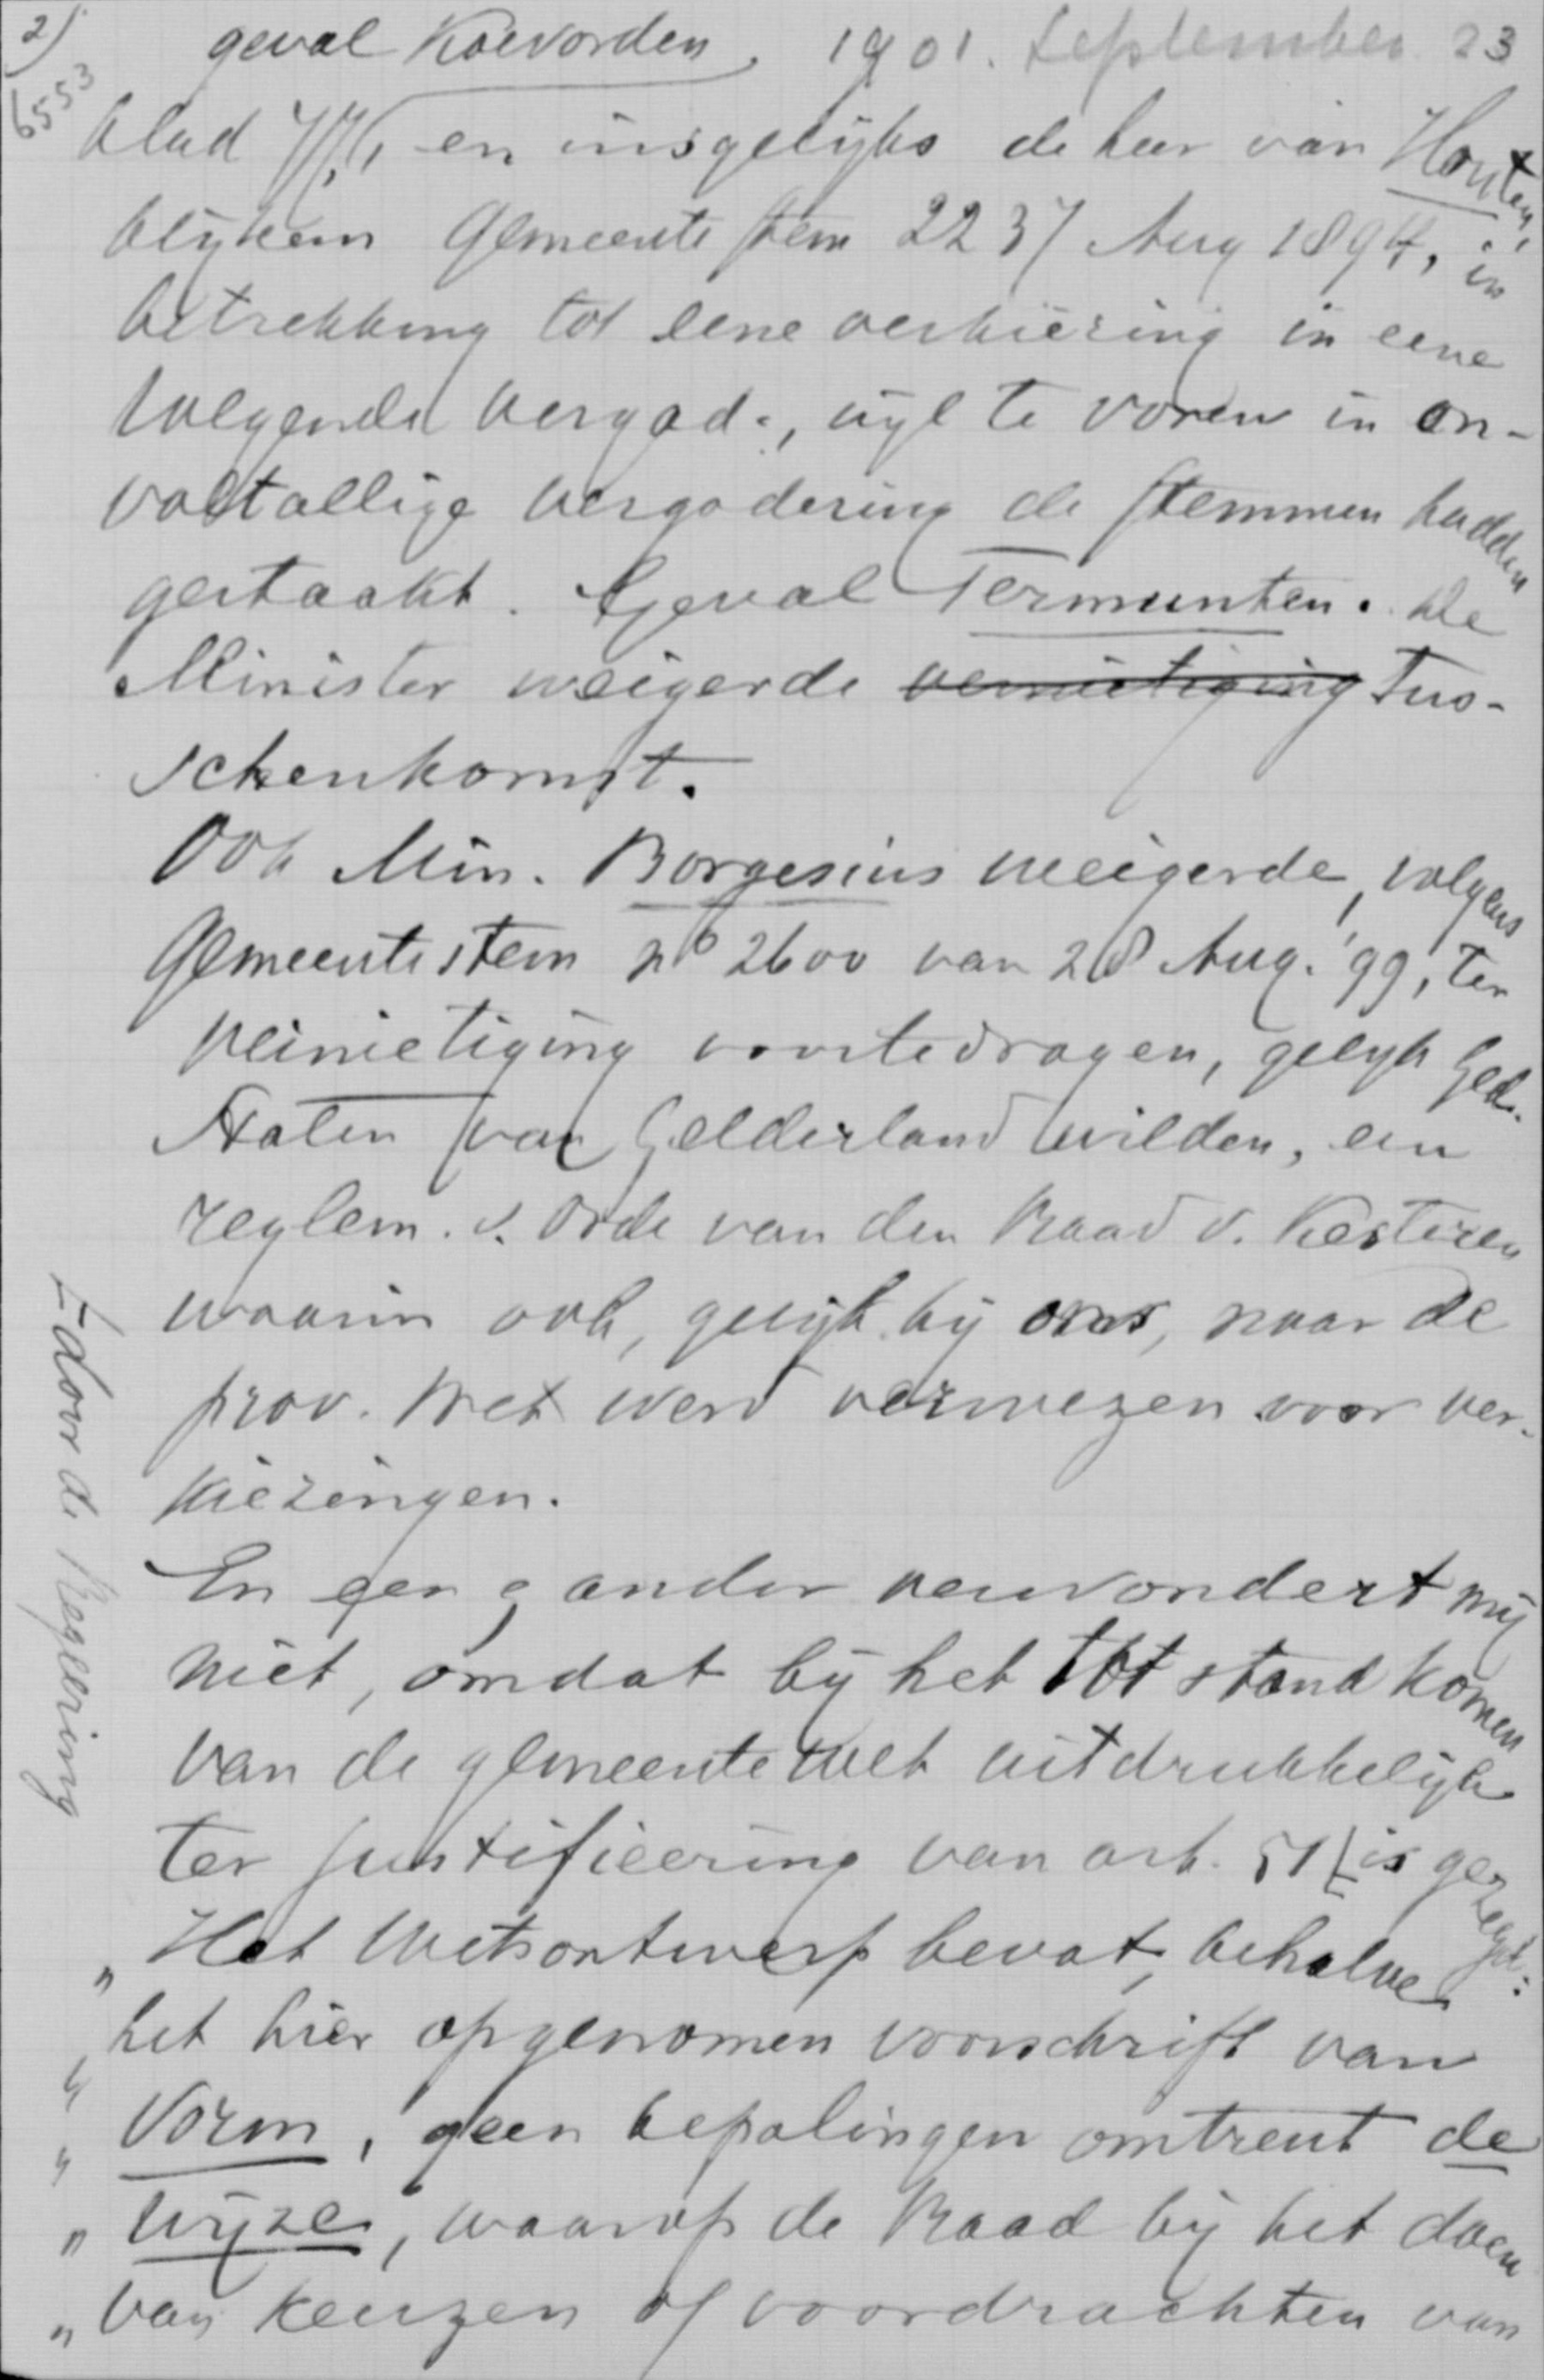 2) geval Koevorden. 1901. September 23
6553
blad 77, en insgelijks de heer van Houten,
blijkens Gemeentestem 2237 Aug 1894, in
betrekking tot eene verkiezing in eene
volgende vergad., wijl te voren in on-
voltallige vergadering de stemmen hadden
gestaakt. Geval Termunten. De
Minister weigerde vernietiging Tus-
schenkomst.
Ook Min. Borgesius weigerde, volgens
Gemeentestem no 2600 van 28 Aug. '99, ter
vernietiging voortedragen, gelijk Ged.
Staten van Gelderland wilden, een
reglem. v. Orde van den Raad v. Kesteren
waarin ook, gelijk bij ons, naar de
prov. Wet werd verwezen voor ver-
kiezingen.
En een & ander verwondert mij
niet, omdat bij het tot stand komen
van de gemeentewet uitdrukkelijk
ter justificeering van art. 51 is gezegd:
"Het Wetsontwerp bevat, behalve
"het hier opgenomen voorschrift van
"Vorm, geen bepalingen omtrent de
"wijze, waarop de Raad bij het doen
"van keuzen of voordrachten van
door de Regeering